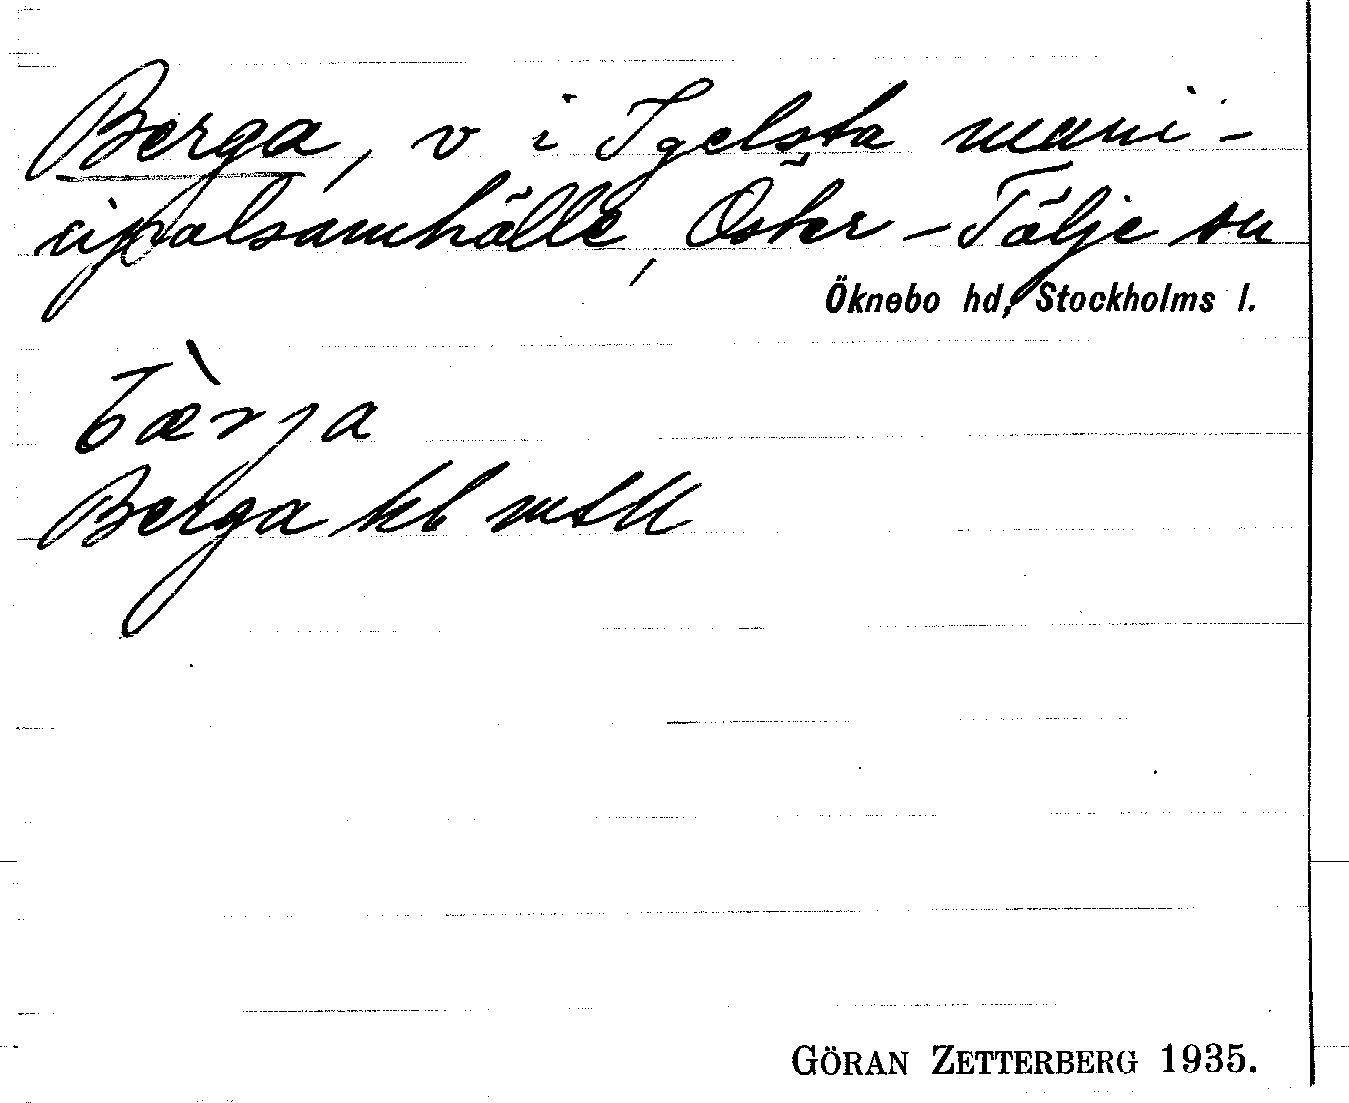 Berga, v i Igelsta muni-
cipalsamhälle, Öster-Tälje sn
Öknebo hd, Stockholms l.
bæ̀rja
Berga hl mtll
GÖRAN ZETTERBERG 1935.